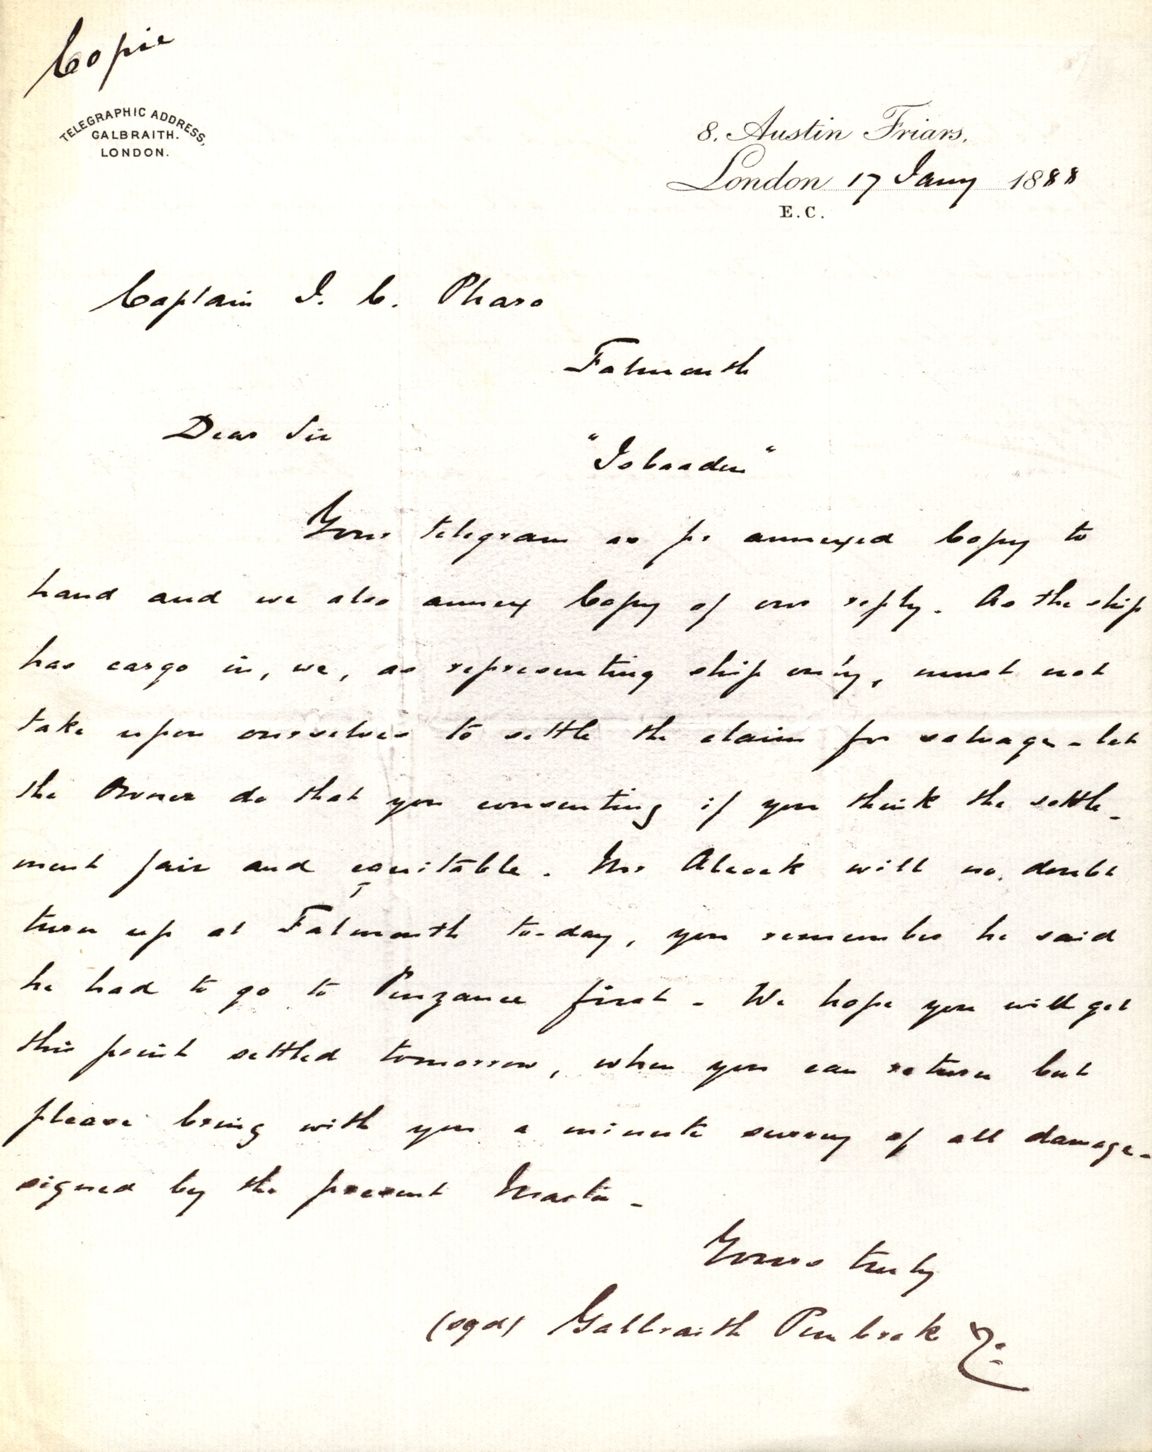 Copie
TELEGRAPHIC ADDRESS,
GALBRAITH.
LONDON.
8, Austin Friars,
London 17 Jany 1888
E.C.
Captain J. C. Pharo
Falmouth
Dear Sir
Your telegram as pr annexed Copy to
hand and we also annex Copy of our reply. As the ship
has cargo in, we, as representing ship only, must not
take upon ourselves to settle the claim for salvage - let
the Owner do that you consenting if you think the settle-
ment fair and equitable. Mr Alcock will no doubt
turn up at Falmouth to-day, you remember he said
he had to go to Penzance first - We hope you will get
this point settled tomorrow, when you can return but
please bring with you a minute survey of all damage -
signed by the present Master -
Yours truly
(sgd) Galbraith Pembroke